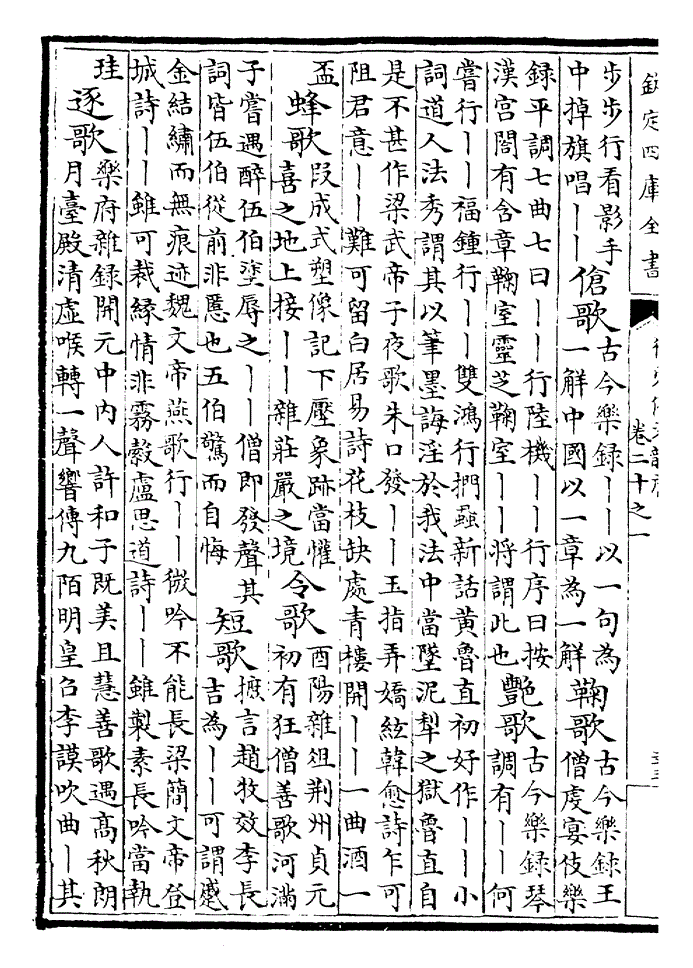 欽定四庫全書
卷二十之一
步步行看影手
中掉旗唱丨丨
傖歌
古今樂録丨丨以一句為
一解中國以一章為一解
鞠歌
古今樂録王
僧虔宴伎樂
録平調七曲七曰丨丨行陸機丨丨行序曰按
漢宫閣有含章鞠室靈芝鞠室丨丨將謂此也
豔歌
古今樂録琴
調有丨丨何
嘗行丨丨福鍾行丨丨雙鴻行捫蝨新話黄魯直初好作丨丨小
詞道人法秀謂其以筆墨誨淫於我法中當墜泥犁之獄魯直自
是不甚作梁武帝子夜歌朱口發丨丨玉指弄嬌絃韓愈詩乍可
阻君意丨丨難可留白居易詩花枝缺處青樓開丨丨一曲酒一
盃
蜂歌
段成式塑像記下壓象跡當懼
喜之地上接丨丨雜莊嚴之境
令歌
酉陽雜俎荆州貞元
初有狂僧善歌河滿
子嘗遇醉伍伯塗辱之丨丨僧即發聲其
詞皆伍伯從前非慝也五伯驚而自悔
短歌
摭言趙牧效李長
吉為丨丨可謂蹙
金結繡而無痕迹魏文帝燕歌行丨丨微吟不能長梁簡文帝登
城詩丨丨雖可裁緣情非霧縠盧思道詩丨丨雖製素長吟當執
珪
逐歌
樂府雜録開元中内人許和子既美且慧善歌遇髙秋朗
月臺殿清虚喉轉一聲響傳九陌明皇召李謨吹曲丨其